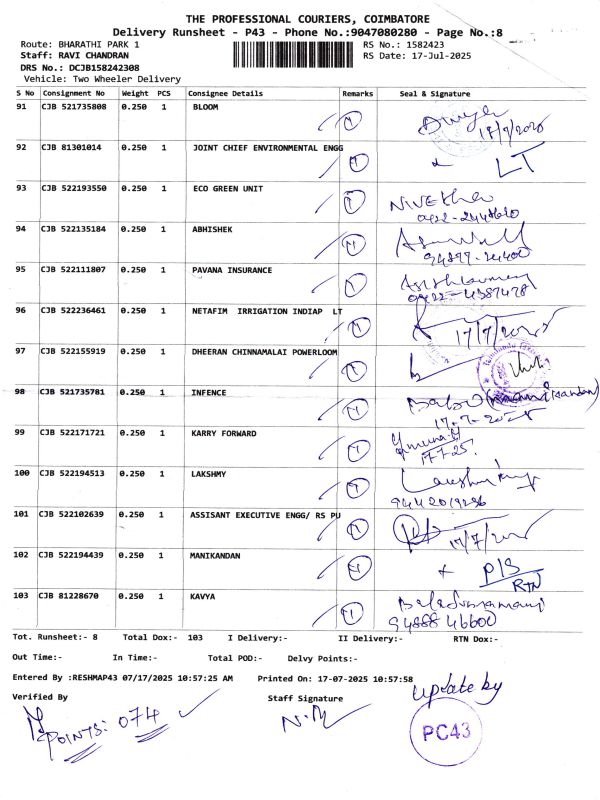 THE PROFESSIONAL COURIERS, COIMBATORE
Delivery Runsheet - P43 - Phone No.:9047080280 - Page No.:8
Route: BHARATHI PARK 1 RS No.: 1582423
Staff: RAVI CHANDRAN RS Date: 17-Jul-2025
DRS No.: DCJB158242308
Vehicle: Two Wheeler Delivery
S No Consignment No Weight PCS Consignee Details Remarks Seal & Signature
91 CJB 521735808 0.250 1 BLOOM
17/7/2025
92 CJB 81301014 0.250 1 JOINT CHIEF ENVIRONMENTAL ENGG
LT
93 CJB 522193550 0.250 1 ECO GREEN UNIT
94 CJB 522135184 0.250 1 ABHISHEK
95 CJB 522111807 0.250 1 PAVANA INSURANCE
0422-4387478
96 CJB 522236461 0.250 1 NETAFIM IRRIGATION INDIAP LT
17/7/2025
97 CJB 522155919 0.250 1 DHEERAN CHINNAMALAI POWERLOOM
98 CJB 521735781 0.250 1 INFENCE
17-7-2025
99 CJB 522171721 0.250 1 KARRY FORWARD
17-7-25
100 CJB 522194513 0.250 1 LAKSHMY
101 CJB 522102639 0.250 1 ASSISANT EXECUTIVE ENGG/ RS PU
17/7/2025
102 CJB 522194439 0.250 1 MANIKANDAN
P/S
RTN
103 CJB 81228670 0.250 1 KAVYA
94888 46600
Tot. Runsheet:- 8 Total Dox:- 103 I Delivery:- II Delivery:- RTN Dox:-
Out Time:- In Time:- Total POD:- Delvy Points:-
Entered By :RESHMAP43 07/17/2025 10:57:25 AM Printed On: 17-07-2025 10:57:58
Verified By Staff Signature update by
POINTS: 074
PC43